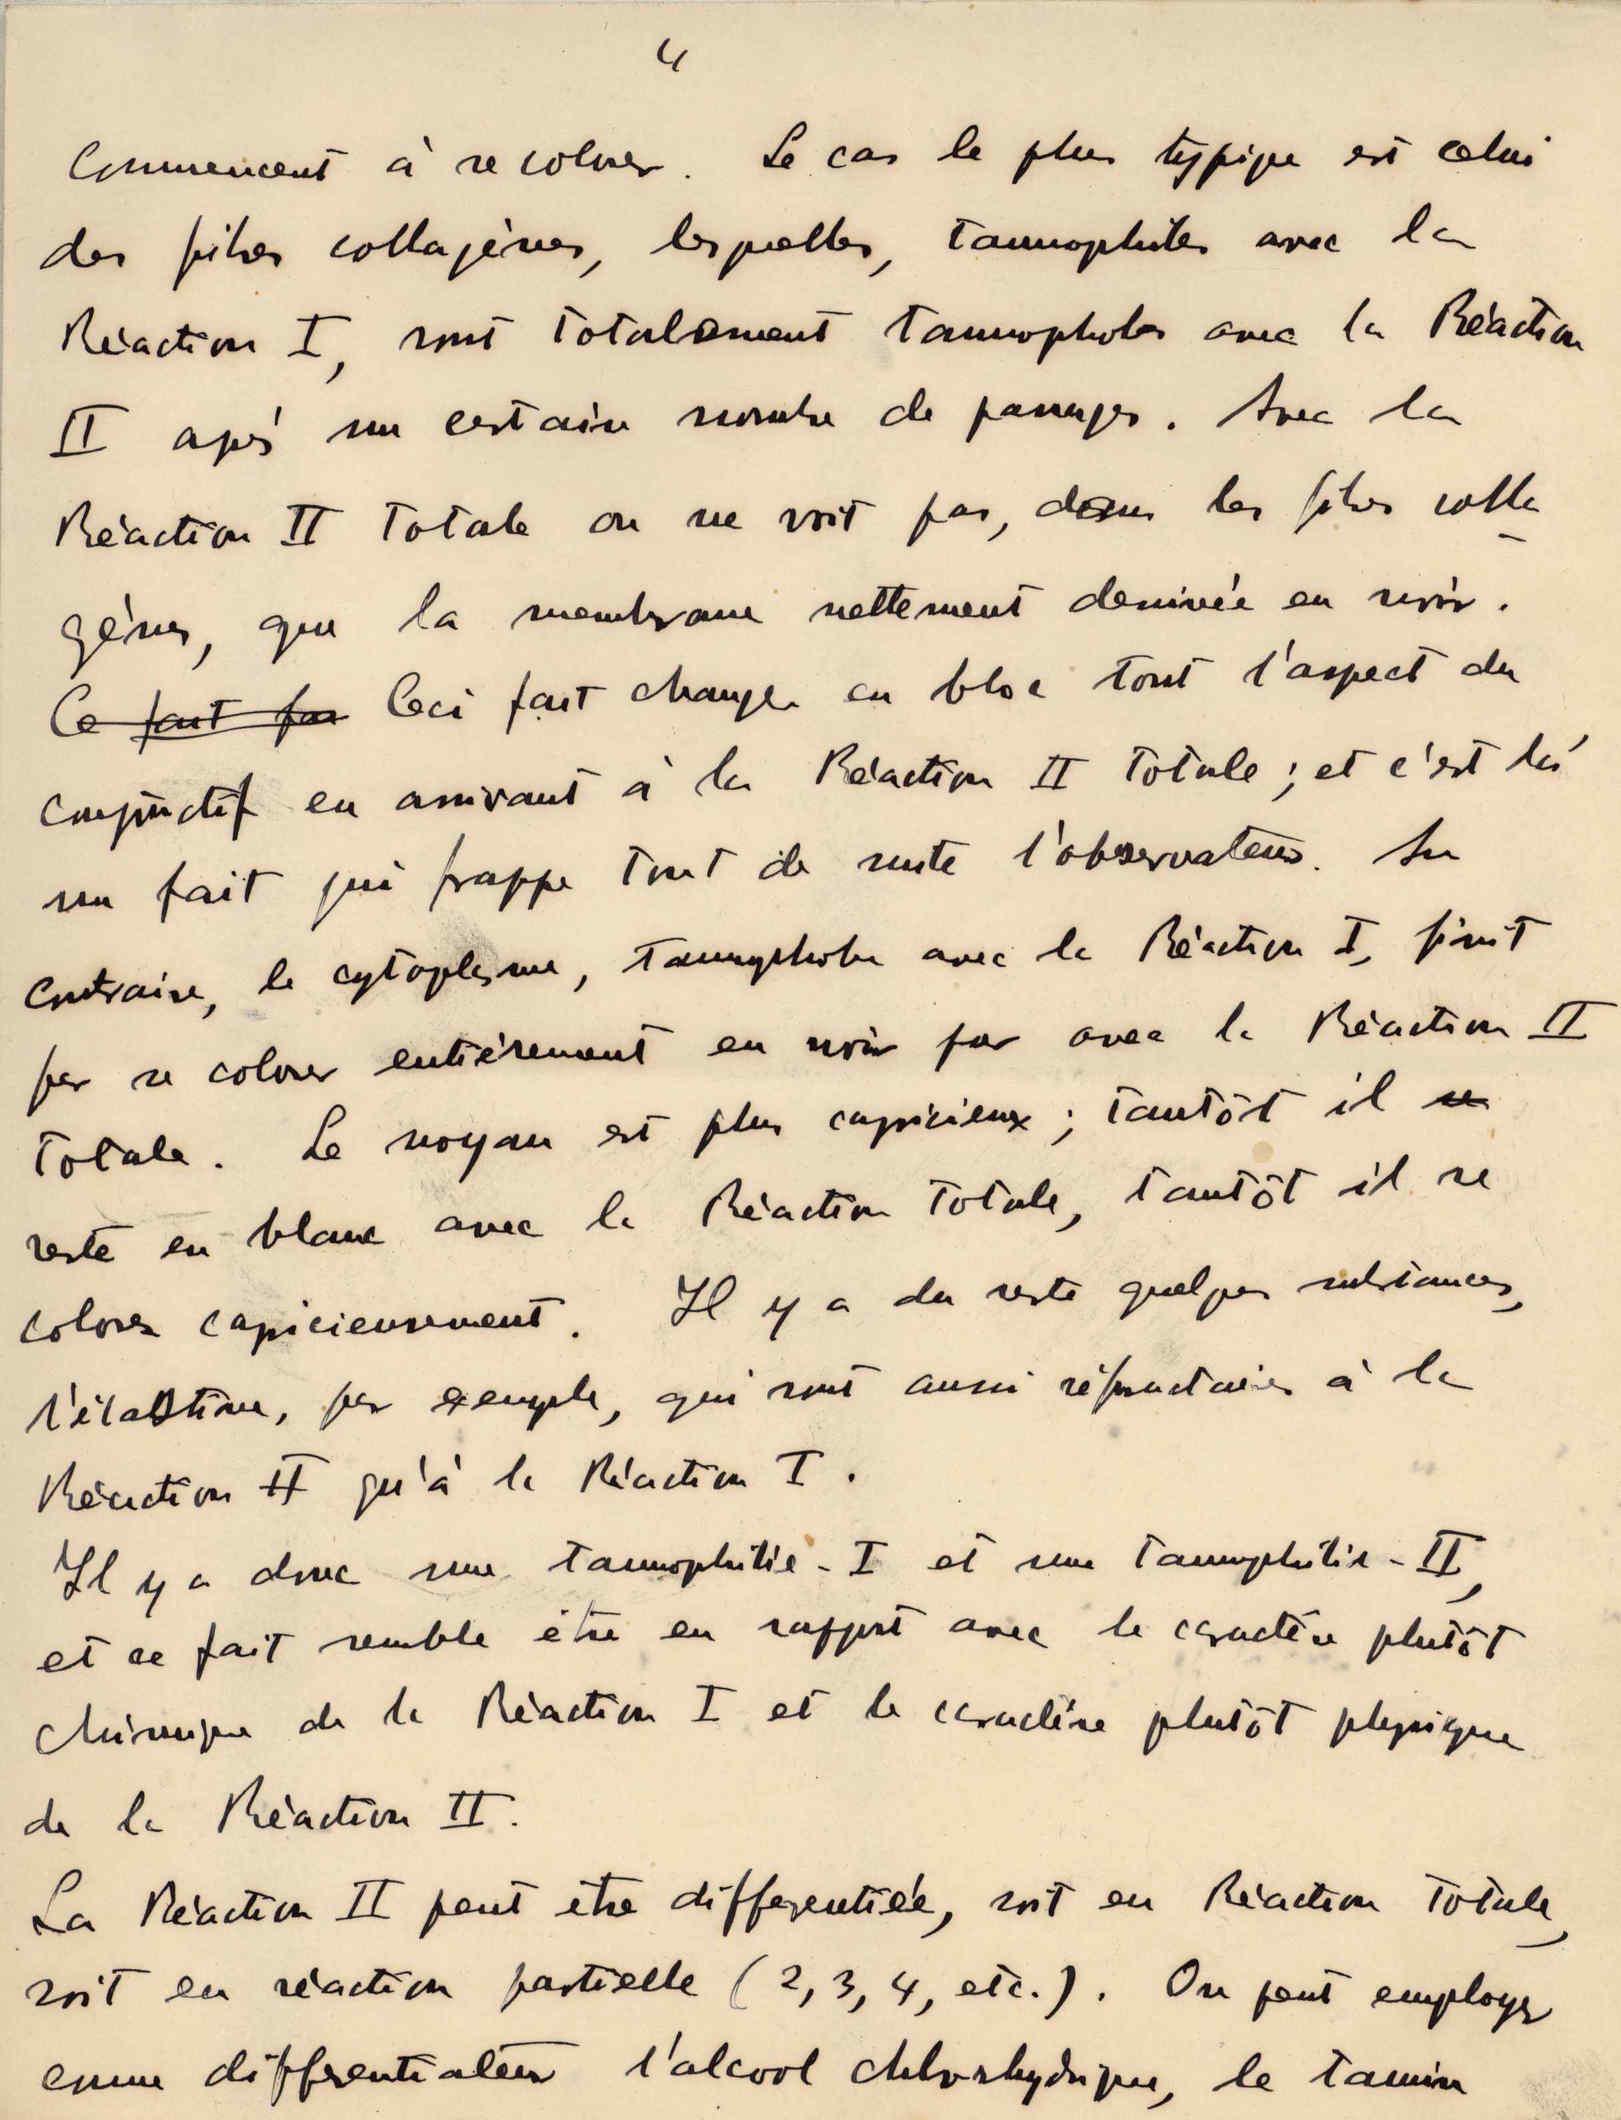 4
commencent à se colorer. Le cas le plus typique est celui
des fibres collagènes, lesquelles, tannophiles avec la
Réaction I, sont totalement tannophobes avec la Réaction
II aprés un certain nombre de passages. Avec la
Réaction II totale on ne voit pas, dans les fibres colla-
génes, que la membrane nettement dessinée en noir.
Ce fait fai Ceci fait changer en bloc tout l'aspect du
conjonctif en arrivant à la Réaction II totale; et c'est là
un fait qui frappe tout de suite l'observateur. Au
contraire, le cytoplasme, tannophobe avec la Réaction I, finit
par se colorer entiérement en noir par avec la Réaction II
totale. Le noyau est plus capricieux; tantôt il se
reste en blanc avec la Réaction totale, tantôt il se
colorer capricieusement. Il y a du reste quelques substances,
l'élastine, par exemple, qui sont aussi réfractaires à la
Réaction II qu'à la Réaction I.
Il y a donc une tannophilie-I et une tannophilie-II,
et ce fait semble être en rapport avec le caractère plutôt
chimique de la Réaction I et le caractère plutôt physique
de la Réaction II.
La Réaction II peut être differentiée, soit en Réaction totale,
soit en réaction partielle (2, 3, 4, etc.). On peut employer
comme différentiateur l'alcool chlorhydrique, le tannin